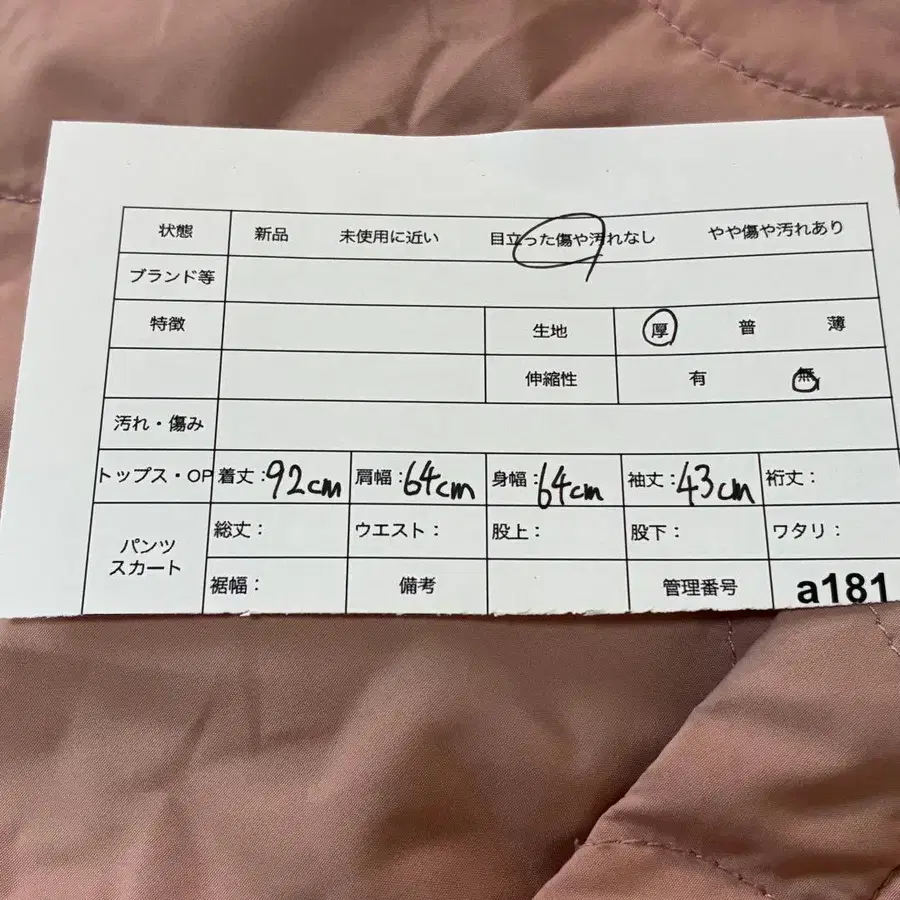 状態 新品 未使用に近い 目立った傷や汚れなし やや傷や汚れあり
ブランド等
特徴 生地 厚 普 薄
伸縮性 有 無
汚れ・傷み
トップス・OP 着丈:92cm 肩幅:64cm 身幅:64cm 袖丈:43cm 裄丈:
パンツ
スカート
総丈: ウエスト: 股上: 股下: ワタリ:
裾幅: 備考 管理番号 a181